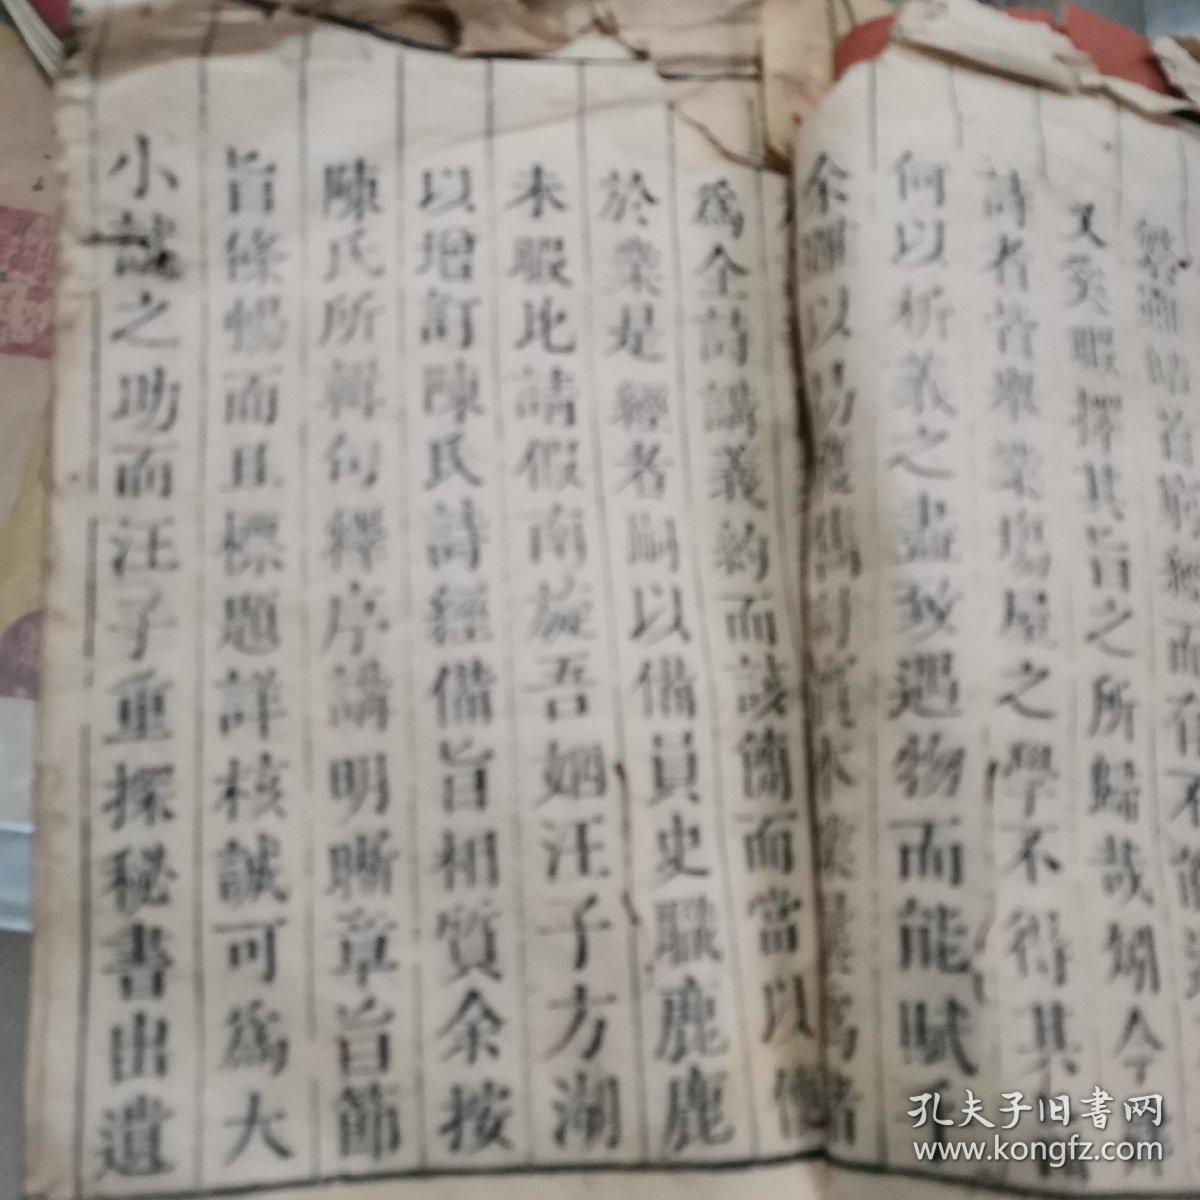 繁
又奚暇擇其旨之所歸哉矧今
詩者皆舉業塲屋之學不得其
何以析義之盡致遇物而能賦
余 以
爲全詩講義約而該簡而當以
於業是經者嗣以備員史職鹿鹿
未暇比請假南旋吾姻汪子方湖
以增訂陳氏詩經備旨相質余按
陳氏所輯句釋序講明晰章旨節
旨條暢而且標題詳核誠可爲大
小試之助而汪子重探秘書出遺
孔夫子旧書网
www.kongfz.com